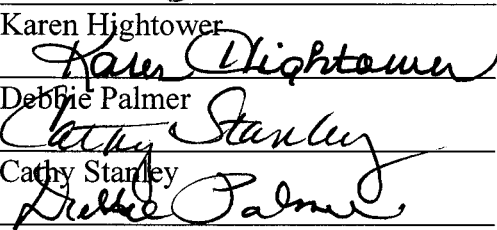 Karen Hightower
Karen Hightower
Debbie Palmer
Cathy Stanley
Cathy Stanley
Debbie Palmer